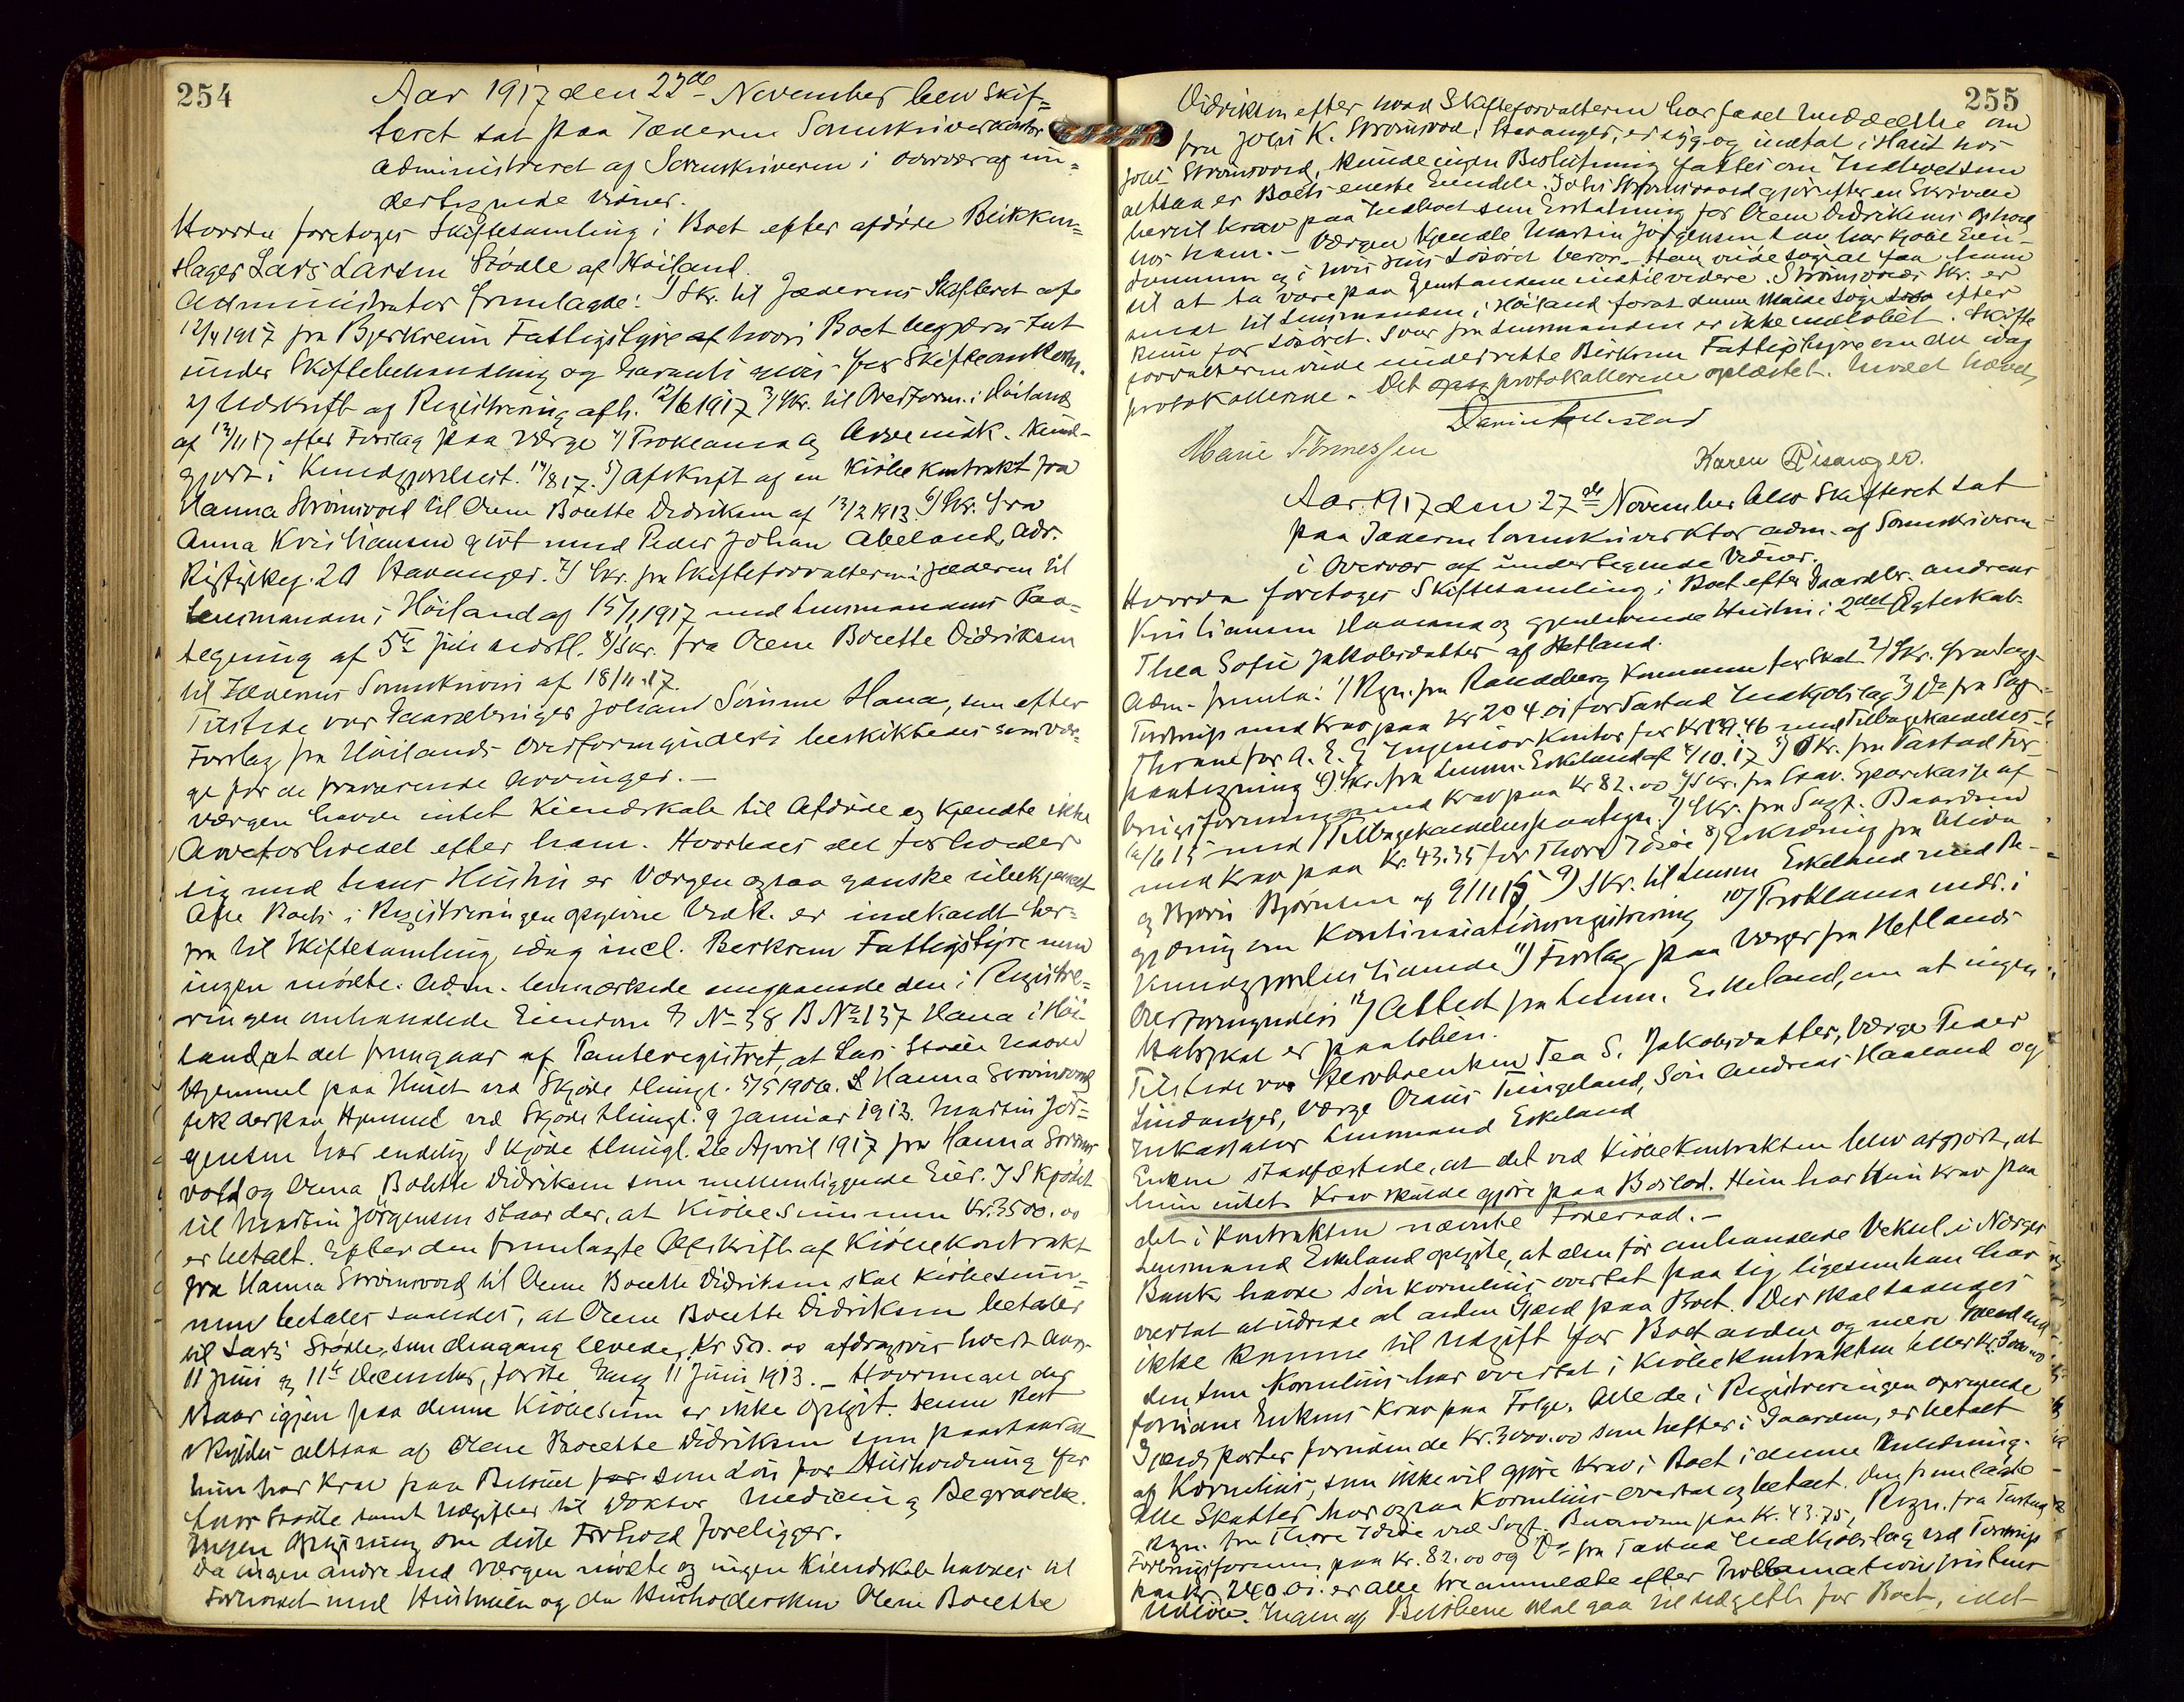 254
Aar 1917 den 22de November blev Skif-
teret sat paa Jæderens Sorenskriverkontor
administreret af Sorenskriveren i Overvær af un-
dertegnede Vidner.
Hvorda foretoges Skiftesamling i Boet efter afdøde Blikken-
slager Lars Larsen Stødle af Høiland.
Administrator fremlagde: 1) Skr. til Jæderens Skifteret af
12/4 1917 fra Bjerkreim Fattigstyre af hvori Boet begjæres tat
under Skiftebehandling og Garanti givis for Skifteomkostn.
2) Udskrift af Registrering afh. 12/6 1917 3) Skr. til Overform. i Høiland
af 13/11 17 efter Forslag paa Værge 4) Proklama og Arveindk. kund-
gjort i Kundgjørelsest. 14/8 17. 5) Afskrift af en Kjøbekontrakt fra
Hanna Strømsvold til Olene Bolette Didriksen af 13/2 1913. 6) Skr. fra
Anna Kristiansen givt med Peder Johan Abeland, Adr.
20 Stavanger. 7) Skr. fra Skifteforvalteren i Jæderen til
Lensmanden i Høiland af 15/1 1917 med Lensmandens Paa-
tegning af 5te Juli nedstl. 8) Skr. fra Olene Bolette Didriksen
til Jæderens Sorenskriveri af 18/11 17.
Tilstede var Gaardbruger Johan Sømme Hana, som efter
Forslag fra Høilands Overformynderi beskikkedes som Vær-
ge for de fraværende Arvinger. —
Værgen havde intet Kjendskab til Afdøde og kjendte ikke
Arveforholdet efter ham. Hvorledes det forholder
sig med hans Hustru er Værgen ogsaa ganske ubekjendt
Alle Boets i Registreringen opgivne Vedk. er indkaldt her-
fra til Skiftesamling idag incl. Berkrem Fattigstyre men
ingen mødte. Adm. bemærkede angaaende den i Registre-
ringen omhandlede Eiendom G No 38 B No 137 Hana i Høi-
land, at det fremgaar af Panteregistret, at Lars Stødle havde
Hjemmel paa Huset ved Skjøde thingl. 5/5 1906. Hanna Strømsvold
fik derpaa Hjemmel ved Skjøde thingl. 9 Januar 1913. Martin Jør-
gensen har endelig Skjøde thingl. 26 April 1917 fra Hanna Strøms-
vold og Olena Bolette Didriksen som mellemliggende Eier. I Skjødet
til Martin Jørgensen staar der, at Kjøbesummen Kr. 3500.00
er betalt. Efter den fremlagte Afskrift af Kjøbekontrakt
fra Hanna Strømsvold til Olene Bolette Didriksen skal Kjøbesum-
men betales saaledes, at Olene Bolette Didriksen betaler
til Lars Stødle, som dengang levede, Kr 50.00 afdragsvis hvert Aars
11 Juni og 11te December, første Gang 11 Juni 1913. — Hvormeget der
staar igjen paa denne Kjøbesum er ikke opgivt. Denne Rest
skyldes altsaa af Olene Bolette Didriksen som paastaar at
hun har Krav paa Beløbet for som Løn for Husholdning for
Lars Stødle samt Udgifter til Doktor, Medicin og Begravelse.
Ingen Oplysning om dette Forhold foreligger.
Da ingen andre end Værgen mødte og ingen Kjendskab havdes til
Forholdet med Hustruen og da Husholdersken Olene Bolette
255
Didriksen efter hvad Skifteforvalteren har faaet Meddelelse om
fra Johs K. Strømsvold, Stavanger, er syg og indtat i Huset hos
Johs Strømsvold, kunde ingen Beslutning fattes om Indboet som
altsaa er Boets eneste Eiendele. Johs Strømsvold gjør efter en Skrivelse
hertil Krav paa Indboet som Erstatning for Olene Didriksens Ophold
hos ham. — Værgen kjendte Martin Jørgensen som har kjøbt Eien-
dommen og i hvis Hus Løsøret beror. Han vilde søge at faa ham
til at ta vare paa Gjenstandene indtil videre. Strømsvolds Skr. er
sendt til Lensmanden i Høiland forat denne maatte søge efter
Rum for Løsøret. Svar fra Lensmanden er ikke indløbet. Skifte-
forvalteren vilde underrette Birkrem Fattigstyre om det idag
protokollerede. Det protokollerede oplæstet. Retten hævet
Marie Tønnessen
Karen Risanger.
Aar 1917 den 27de November blev Skifteret sat
paa Jæderens Sorenskriverktor adm. af Sorenskriveren
i Overvær af undertegnede Vidner.
Hvorda foretoges Skiftesamling i Boet efter Gaardbr. Andreas
Kristiansen Haaland og gjenlevende Hustru i 2det Ægteskab
Thea Sofie Jakobsdatter af Hetland.
Adm. fremla: 1) Regn. fra Randaberg Kommune for Skat 2) Skr. fra Sagf.
Torstrup med Krav paa Kr 204.01 for Tastad Indkjøbslag 3) Do fra Sagf.
Thrane for A. E. G. Ingeniør Kontor for Kr 139.46 med Tilbagekaldelses-
paategning 4) Skr. fra Lensm. Eskeland af 4/10.17 5) Skr. fra Tastad For-
brugsforening med Krav paa Kr 82.00 6) Skr. fra Stav. Sparekasse af
12/6 15 med Tilbagekaldelsespaategn. 7) Skr. fra Sagf. Baardsen
med Krav paa Kr. 43.75 for Thore Idsøe 8) Erklæring fra
og Bjørn Bjørnsen af 9/11 15 9) Skr. til Lensm Eskeland med Re-
gjøring om Kontinuationsregistrering 10) Proklama indr. i
Kundgjørelsestidende 11) Forslag paa Værger fra Hetlands
Overformynderi 12) Attest fra Lensm. Eskeland, om at ingen
Halvskat er paaløben.
Tilstede var Stervboenken Tea S. Jakobsdatter, Værge Peder
Lindanger, Værge Olaus Tengeland, Søn Andreas Haaland og
Inkassator Lensmand Eskeland
Enken stadfæstede, at det ved Kjøbekontrakten blev afgjort, at
hun intet Krav skulde gjøre paa Boslod. Hun har kun Krav paa
det i Kontrakten nævnte Føderaad. —
Lensmand Eskeland oplyste, at den før omhandlede Veksel i Norges
Bank havde Søn Kornelius overtat paa sig ligesom han har
overtat at udrede al anden Gjæld paa Boet. Der skal saaledes
ikke komme til Udgift for Boet anden og mere Gjæld end
den som Kornelius har overtat i Kjøbekontrakten eller Kr. 3000.00
foruden Enkens Krav paa Følge. Alle de i Registreringen opregnede
Gjældsposter foruden de Kr. 3000.00 som hefter i Gaarden, er betalt
af Kornelius, som ikke vil gjøre Krav i Boet i denne Anledning.
Alle Skatter har ogsaa Kornelius overtat og betalt. Den fremlagte
Regn. fra Thore Idsøe ved Sagf. Baardsen paa Kr. 43.75, Regn. fra Tastad
Forbrugsforening paa Kr. 82.00 og Do fra Tastad Indkjøbslag ved Torstrup
paa Kr 240.01 er alle tre anmeldte efter Proklamationsfristens
Udløb. Ingen af Beløbene skal gaa til Udgift for Boet, idet